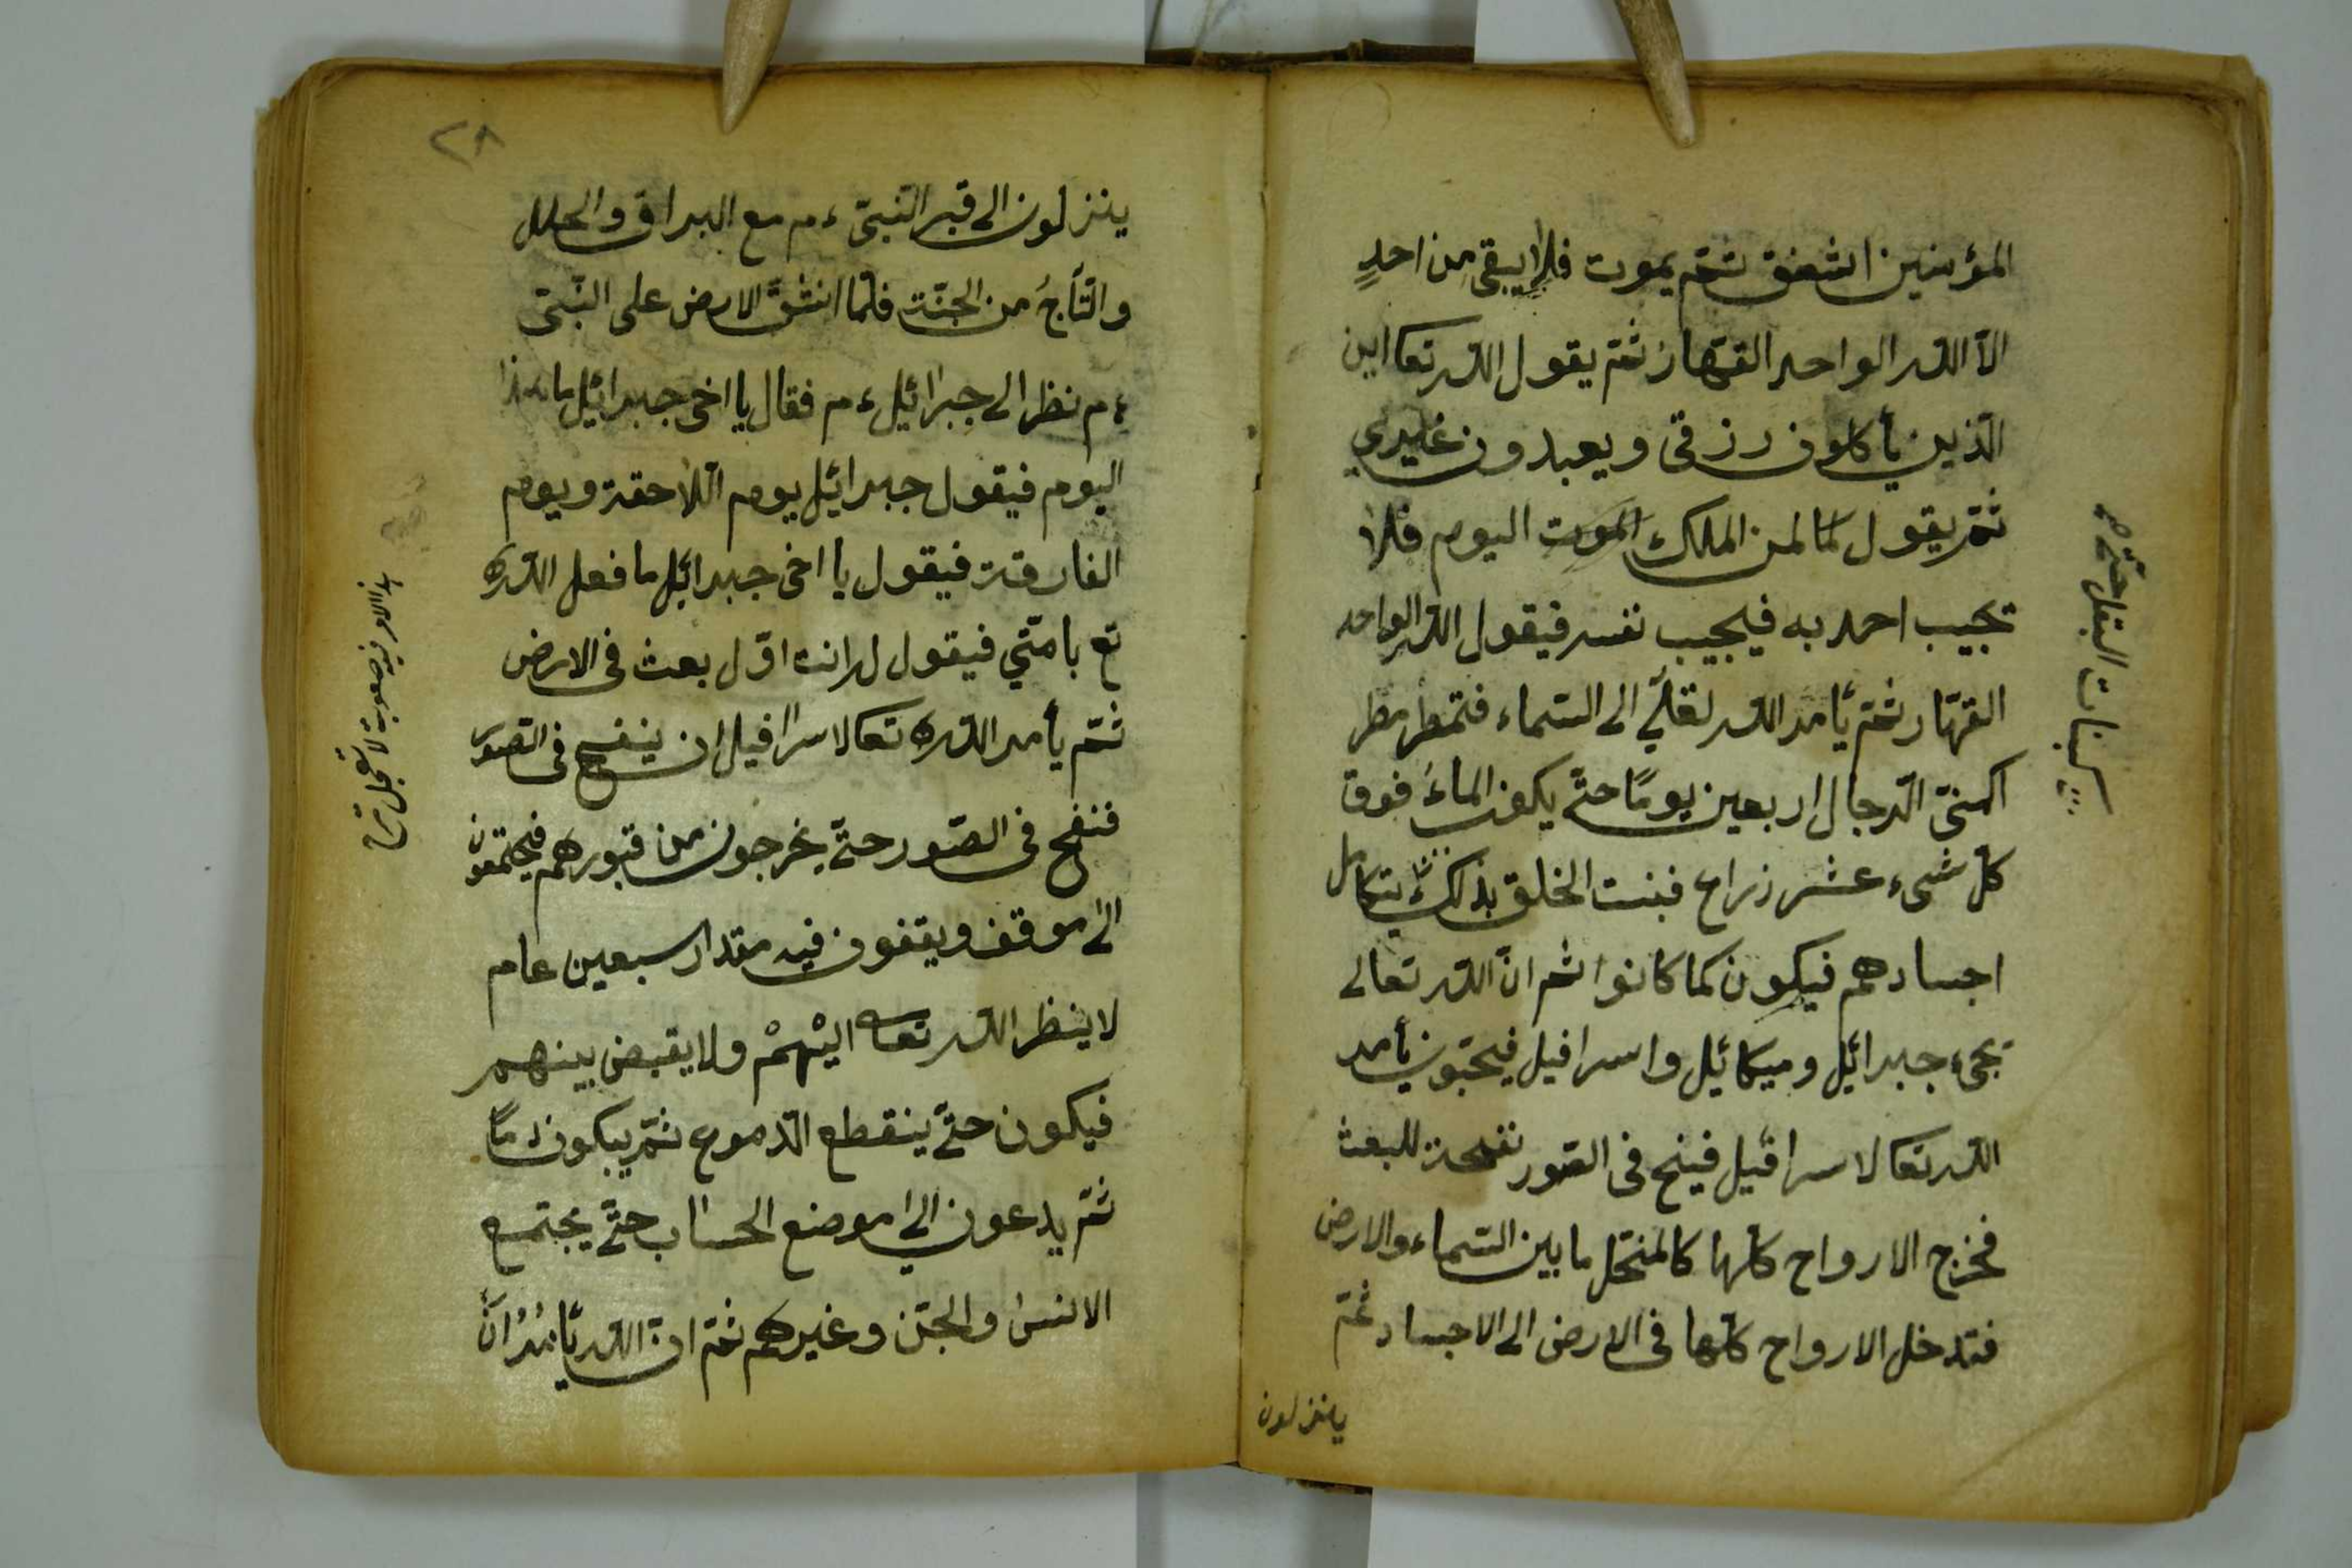 المؤمنين اشفق ثمّ يموت فلا يبقى من احدٍ
الّا اللّه الواحد القهّار ثمّ يقول اللّه تعا اين
الّذين يأكلون رزقى ويعبدون غيرى
ثمّ يقول لمن الملك اليوم فلا
تجيب احد به فيجيب نفسه فيقول اللّه الواحد
القهّار ثمّ يأمر اللّه الى السّماء فتمطر مطر
كمنىّ الرّجال اربعين يومًا حتّى يكون الماءُ فوق
كلّ شىء عشر ذراع فبنت الخلق بذلك يتكامل
اجسادهم فيكون كما كانوا ثم انّ اللّه تعالى
تجىء جبرائيل وميكائيل واسرافيل فيحيّون يأمر
اللّه تعا لاسرافيل فينخ فى الصّور نفخة للبعث
فخرج الارواح كلّها كالمنحّل ما بين السّماء والارض
فتدخل الارواح كلّها فى الارض الى الاجساد ثمّ
ينزلون
كبنات البقل حتّى
٢٨
ينزلون الى قبر النّبىّ ءم مع البراق والحلل
والتّاجُ من الجنّة فلمّا انشقّ الارض على النّبىّ
ءم نظر الى جبرائيل ءم فقال يا اخى جبرائيل ما هذا
اليوم فيقول جبرائيل يوم اللّاحقة ويوم
الفارقة فيقول يا اخى جبرائيل ما فعل اللّه
تع بامّتي فيقول له انت اوّل بعث فى الارض
ثمّ يأمر اللّه تعا لاسرافيل ان ينفخ فى الصّور
فنفخ فى الصّور حتّى يخرجون من قبورهم فيجتمعون
الى موقف ويقفون فيه مقدار سبعين عام
لا ينظر اللّه تعا اليْهمْ ولا يقبض بينهم
فيكون حتّى ينقطع الدّموع ثمّ يبكون دمًا
ثمّ يدعون الى موضع الحساب حتّى يجتمع
الانس والجنّ وغيرهم ثمّ انّ اللّه يأمرُ انّ